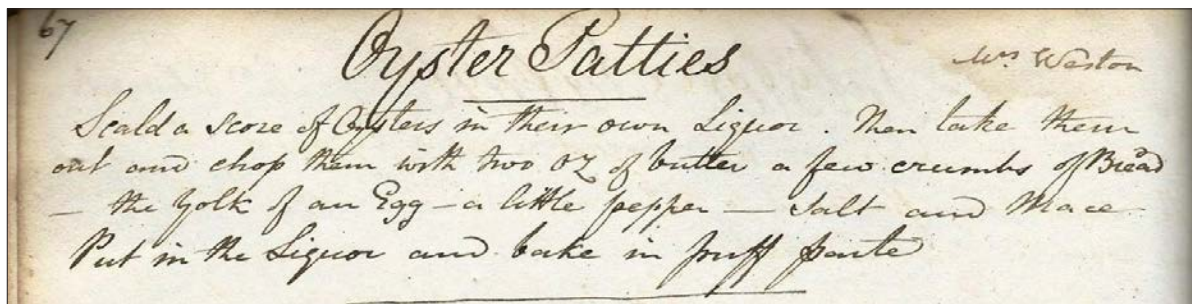 67
Oyster Patties
Mrs Weston
Scald a score of Oysters in their own Liquor. Then take them
out and chop them with two oz of butter a few crumbs of Bread
— the Yolk of an Egg — a little pepper — Salt and Mace
Put in the Liquor and bake in puff paste